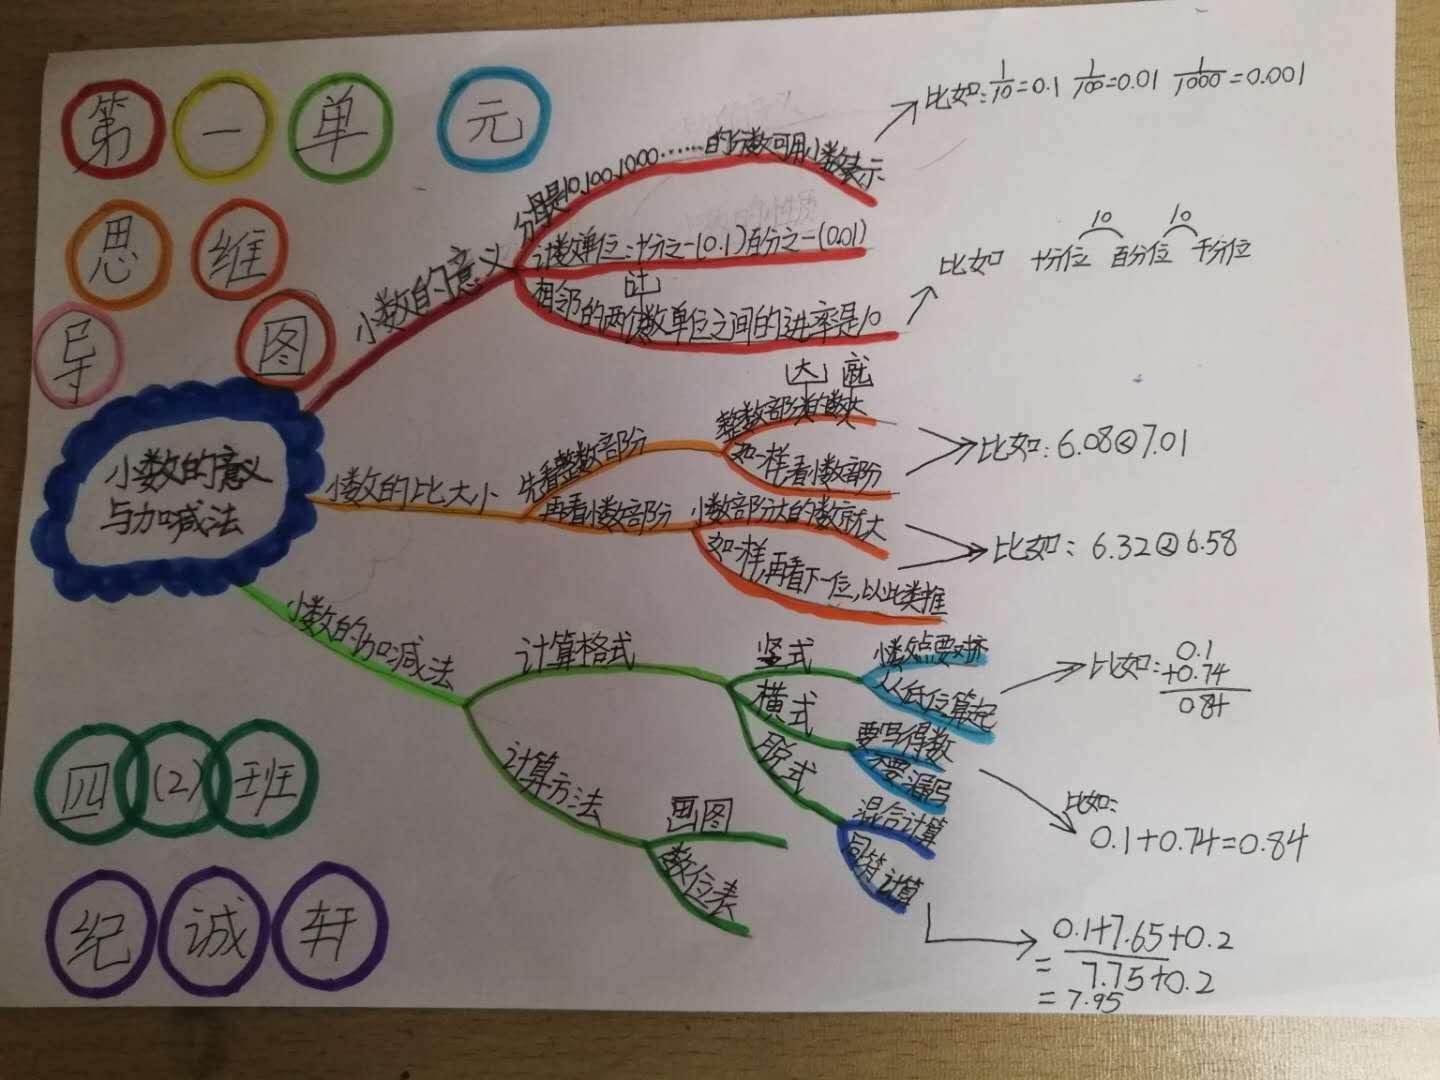 第一单元
思维
导图
小数的意义
与加减法
小数的意义
分母是10,100,1000……的分数可用小数表示
比如:1/10=0.1 1/100=0.01 1/1000=0.001
计数单位:十分之一(0.1)百分之一(0.01)
相邻的两个计数单位之间的进率是10
比如 十分位 百分位 千分位
10 10
小数的比大小
先看整数部份
整数部分大的数就大
如一样,看小数部份
比如:6.08<7.01
再看小数部分
小数部分大的数就大
如一样,再看下一位,以此类推
比如:6.32<6.58
小数的加减法
计算格式
竖式
小数点要对齐
从低位算起
比如:
0.1
+0.74
0.84
横式
要写得数
不要漏写
比如:
0.1+0.74=0.84
脱式
混合计算
同符计算
0.1+7.65+0.2
= 7.75+0.2
= 7.95
计算方法
画图
数位表
四(2)班
纪诚轩